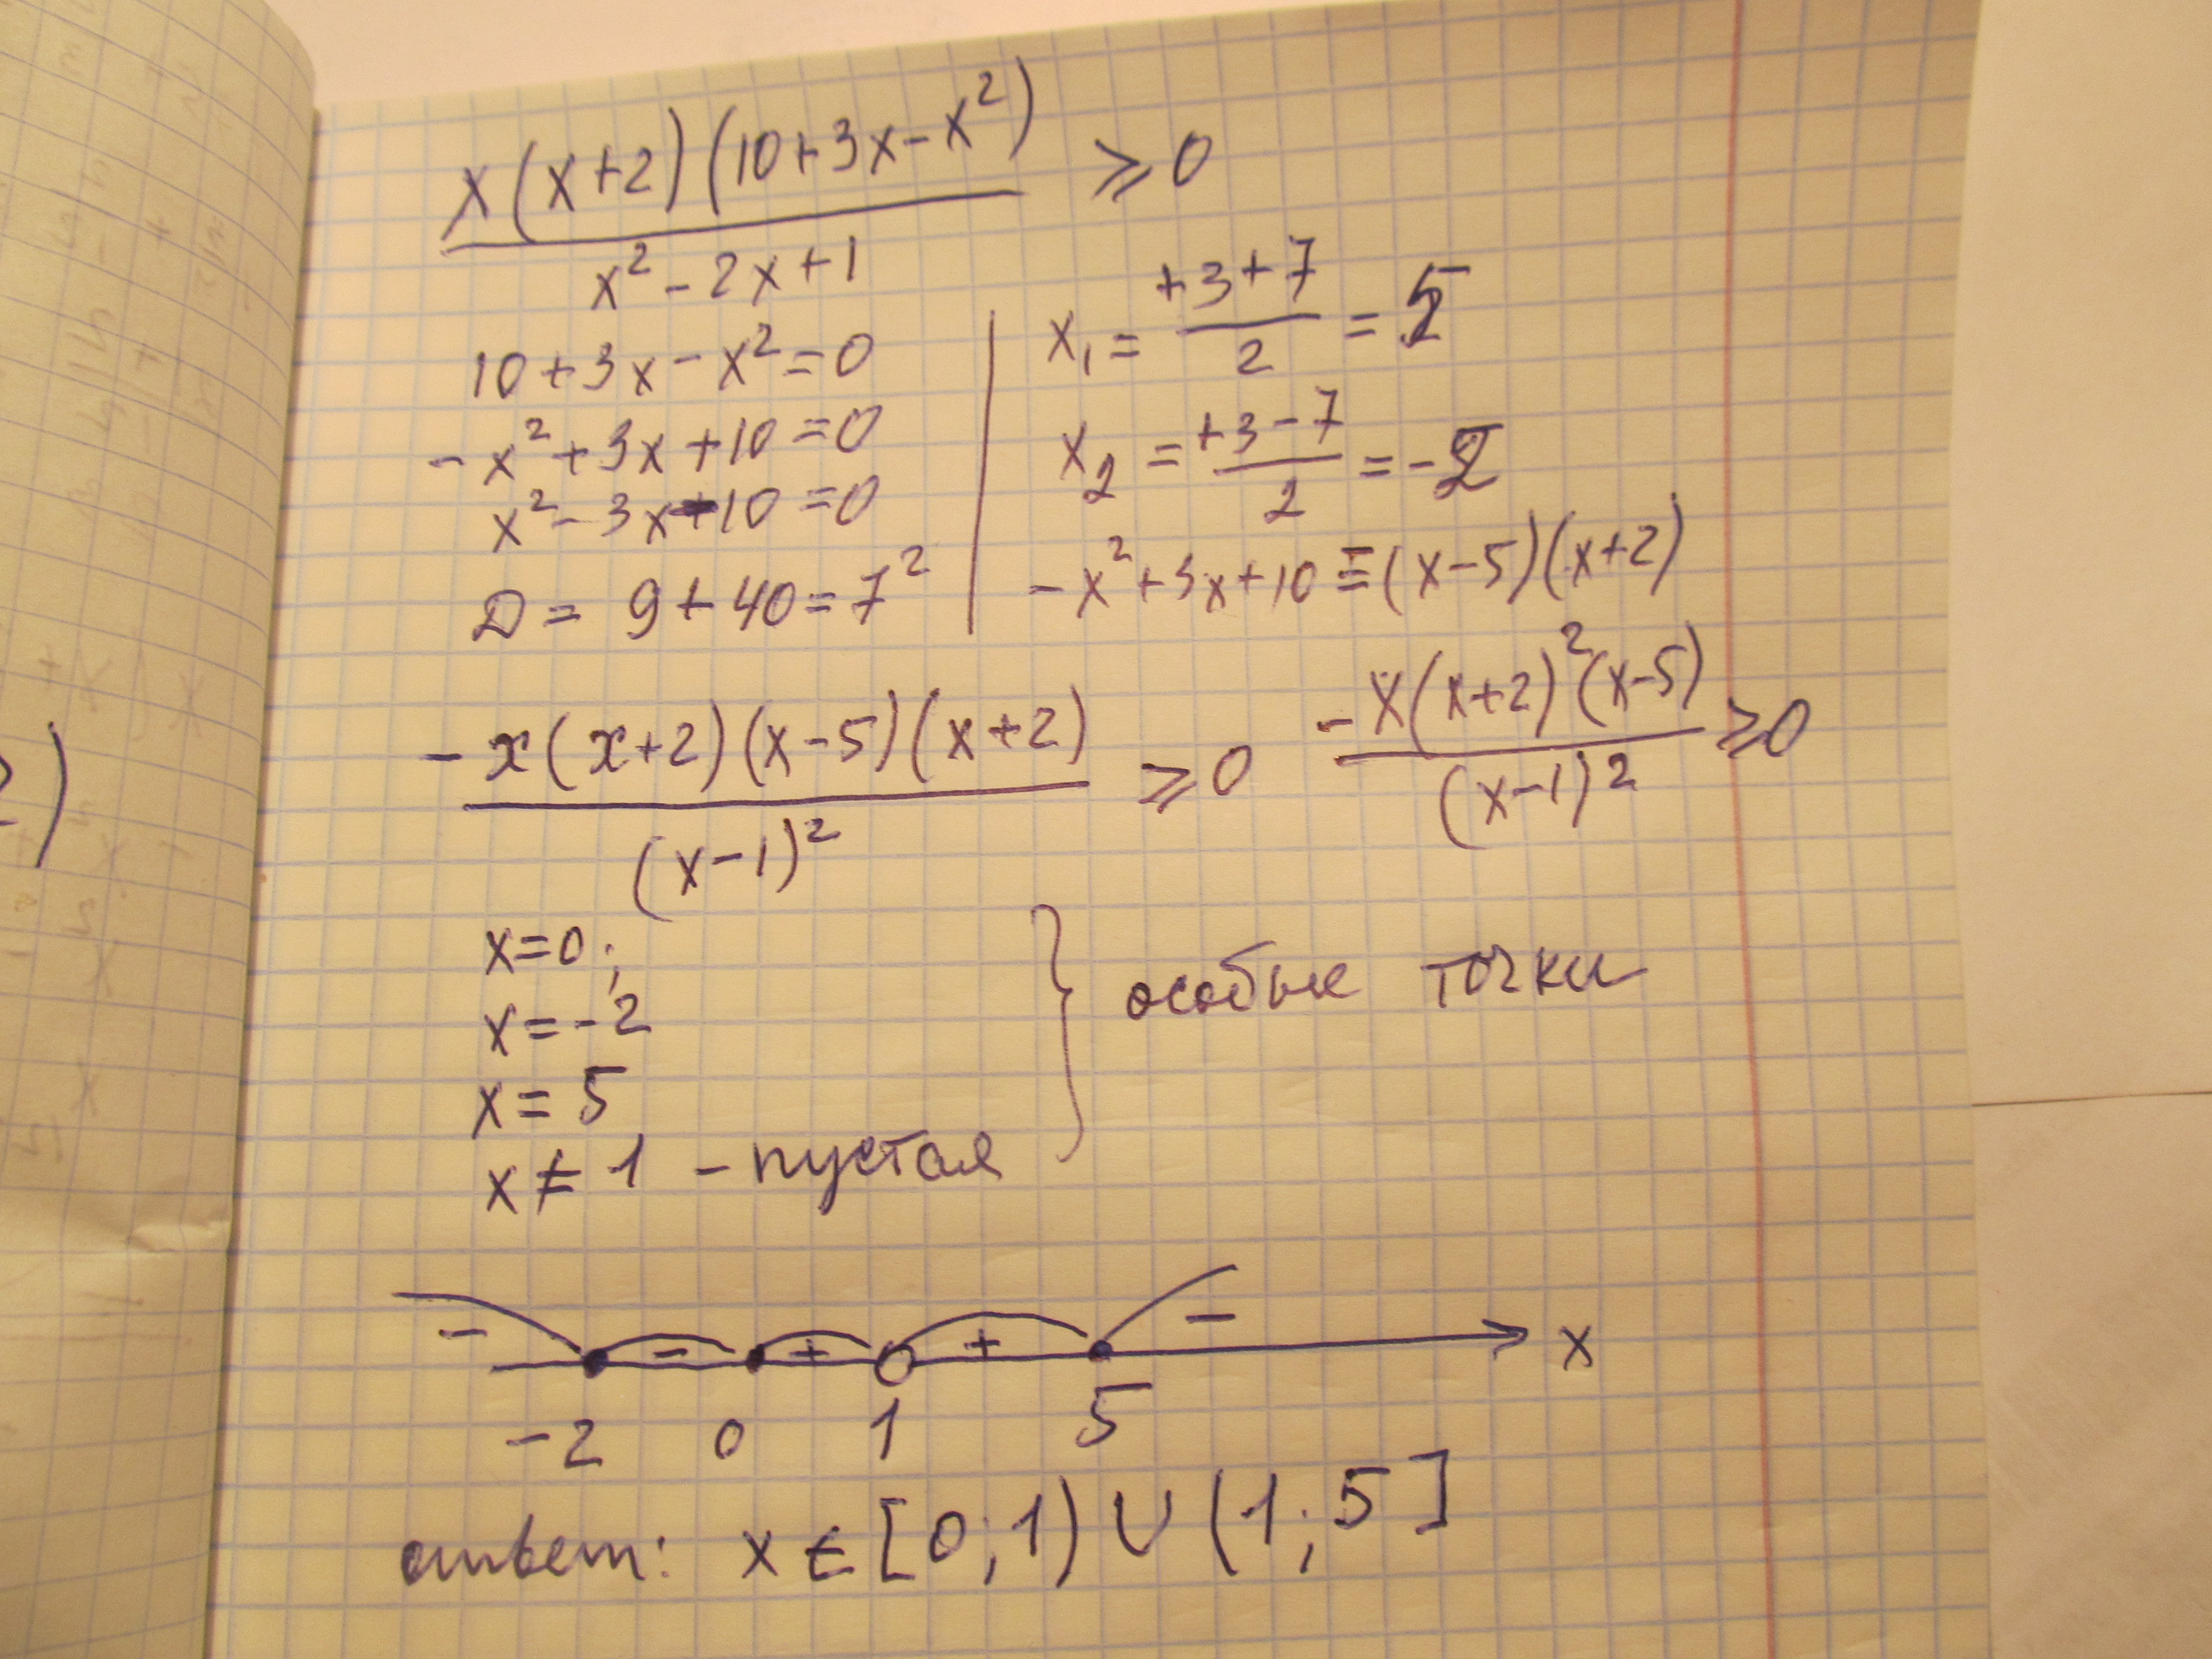 x(x+2)(10+3x-x²)
x²-2x+1
≥0
10+3x-x²=0
-x²+3x+10=0
x²-3x-10=0
D=9+40=7²
x₁=
+3+7
2
=5
x₂=
+3-7
2
=-2
-x²+3x+10=-(x-5)(x+2)
-x(x+2)(x-5)(x+2)
(x-1)²
≥0
-x(x+2)²(x-5)
(x-1)²
≥0
x=0;
x=-2
x=5
x≠1 - пустая
} особые точки
- - + + - x
-2 0 1 5
ответ: x∈[0;1)∪(1;5]